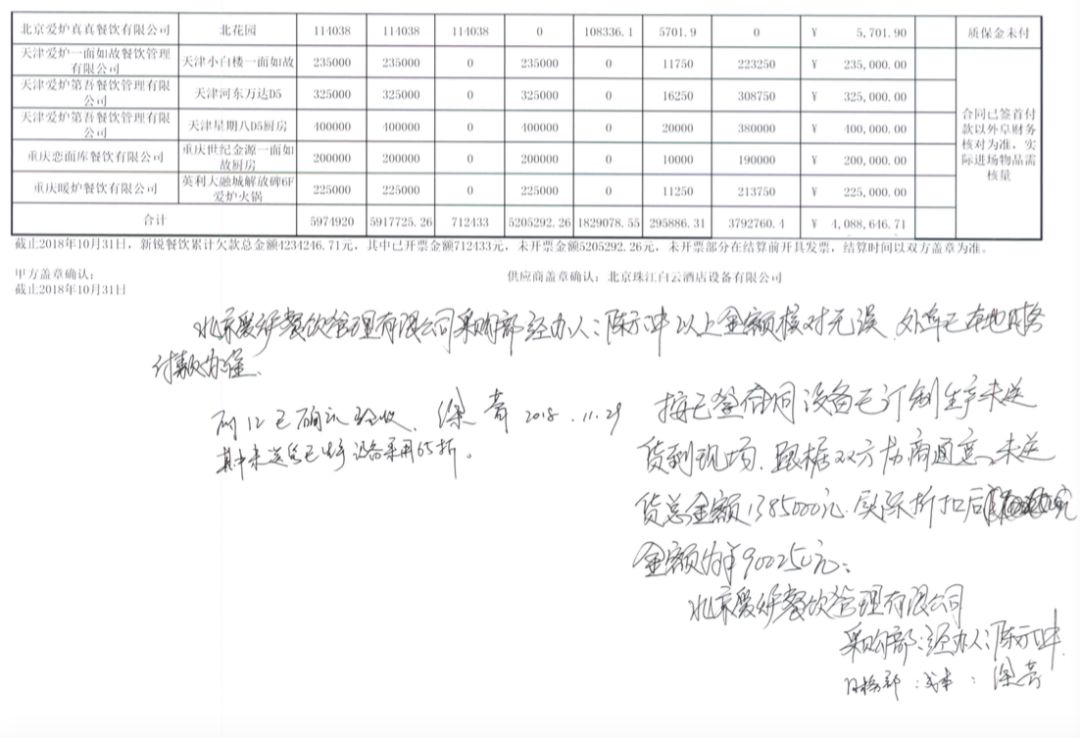 北京爱炉真真餐饮有限公司 北花园 114038 114038 114038 0 108336.1 5701.9 0 ¥ 5,701.90 质保金未付
天津爱炉一面如故餐饮管理有限公司 天津小白楼一面如故 235000 235000 0 235000 11750 223250 ¥ 235,000.00
天津爱炉第吾餐饮管理有限公司 天津河东万达D5 325000 325000 0 325000 16250 308750 ¥ 325,000.00
天津爱炉第吾餐饮管理有限公司 天津星期八D5厨房 400000 400000 0 400000 20000 380000 ¥ 400,000.00
重庆恋面库餐饮有限公司 重庆世纪金源一面如故厨房 200000 200000 0 200000 10000 190000 ¥ 200,000.00
重庆暖炉餐饮有限公司 英利大融城解放碑6F爱炉火锅 225000 225000 0 225000 11250 213750 ¥ 225,000.00
合同已签首付款以外阜财务核对为准，实际进场物品需核量
合计 5974920 5917725.26 712433 5205292.26 1829078.55 295886.31 3792760.4 ¥ 4,088,646.71
截止2018年10月31日，新锐餐饮累计欠款总金额4234246.71元，其中已开票金额712433元，未开票金额5205292.26元，未开票部分在结算前开具发票，结算时间以双方盖章为准。
甲方盖章确认： 供应商盖章确认：北京珠江白云酒店设备有限公司
截止2018年10月31日
北京爱炉餐饮管理有限公司采购部经办人：陈示冲以上金额核对无误 外阜已本地财务
付款为准.
前12已确认验收. 徐 2018.11.29
其中未送货已生产设备采用65折。
按已签合同设备已订制生产未送
货到现场.跟据双方协商通意、未送
货总金额1385000元.实际折扣后
金额为¥900250元；
北京爱炉餐饮管理有限公司
采购部：经办人：陈示冲.
成本：徐